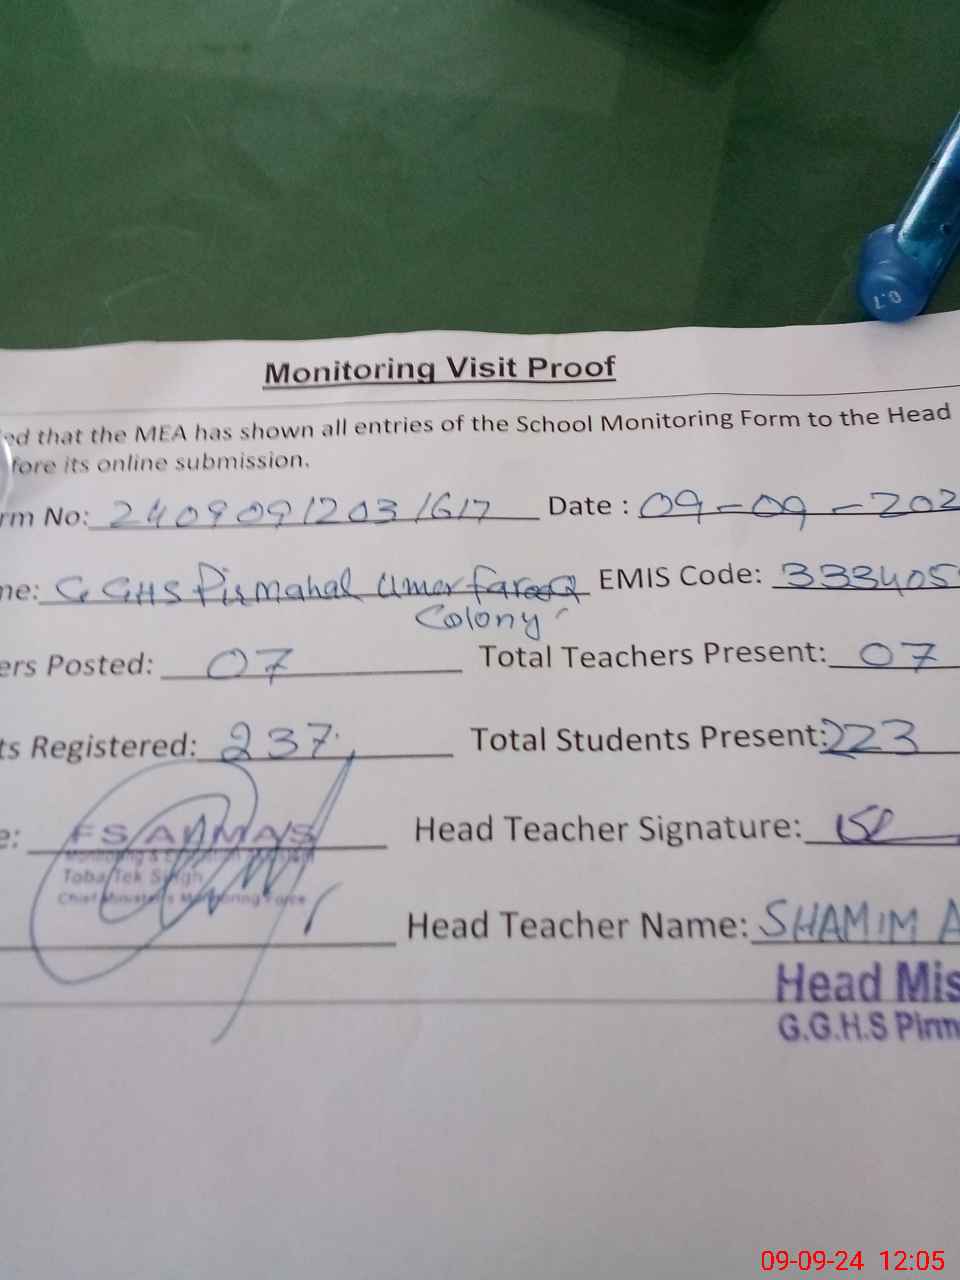 Monitoring Visit Proof
ed that the MEA has shown all entries of the School Monitoring Form to the Head
fore its online submission.
rm No: 2409091203 1617 Date : 09-09-202
me: G GHS Pirmahal Umer farooq EMIS Code: 333405
Colony
ers Posted: 07 Total Teachers Present: 07
ts Registered: 237 Total Students Present: 223
e: Head Teacher Signature:
Toba Tek Singh
Chief Minister's Monitoring Force
Head Teacher Name: SHAMIM A
Head Mis
G.G.H.S Pirm
0.7
09-09-24 12:05